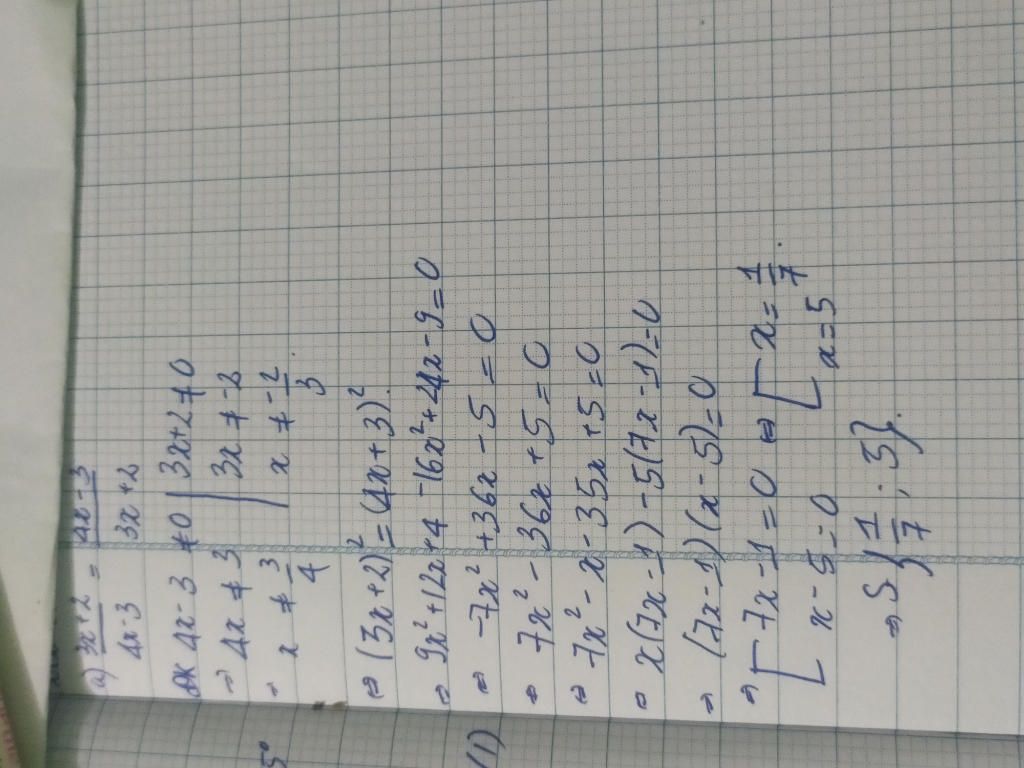 a) \frac{3x+2}{4x-3} = \frac{4x-3}{3x+2}
ĐK 4x-3 ≠0 | 3x+2≠0
⇒ 4x ≠ 3 | 3x ≠ -2
⇒ x ≠ \frac{3}{4} | x ≠ \frac{-2}{3}
⇔ (3x+2)² = (4x+3)².
⇔ 9x²+12x+4 -16x²+24x-9=0
⇔ -7x² +36x -5 =0
⇔ 7x² - 36x +5 =0
⇔ 7x² - x - 35x +5 =0
⇔ x(7x-1) -5(7x-1)=0
⇒ (7x-1)(x-5)=0
⇒ [ 7x-1=0 ⇔ [ x=\frac{1}{7}
[ x-5=0 [ x=5
⇒ S{\frac{1}{7}; 5}.
5°
(1)